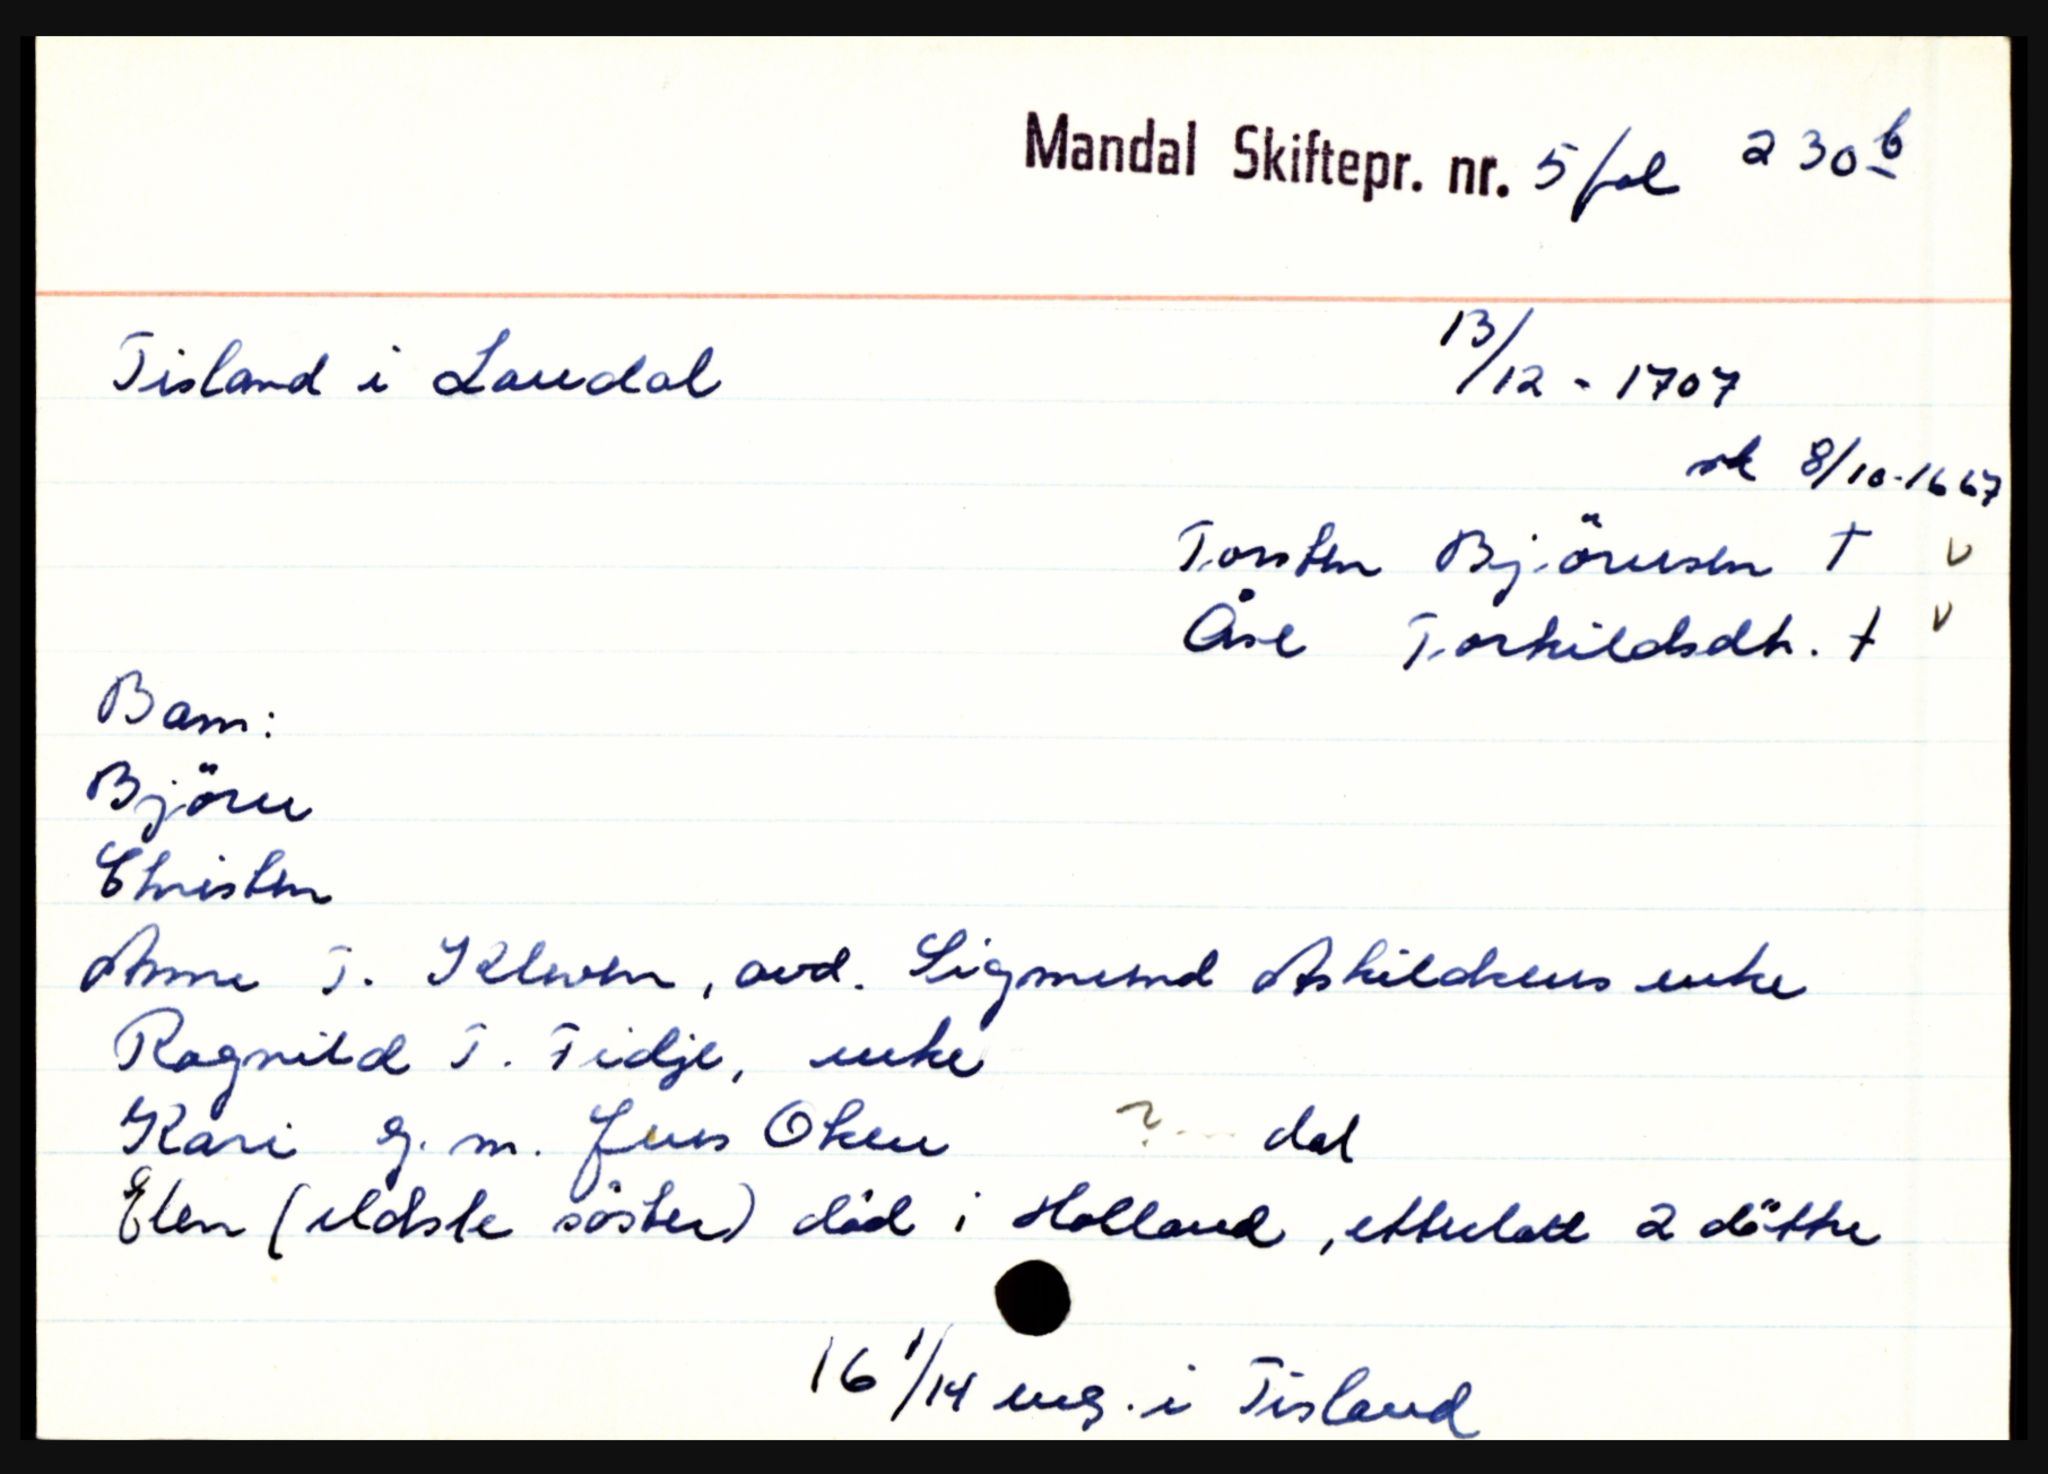 Mandal Skiftepr. nr. 5 fol 230b
Tisland i Laudal 13/12 - 1707
sk 8/10-1667
Torsten Björnsen † v
Åse Torkildsdtr. † v
Barn:
Björn
Christen
Anne T. Kleven, avd. Sigmund Askildsens enke
Ragnild T. Tidje, enke
Kari g. m. Jens Oken ? --- dal
Elen (eldste söster) död i Holland, etterlatt 2 döttre
16 1/14 eng. i Tisland